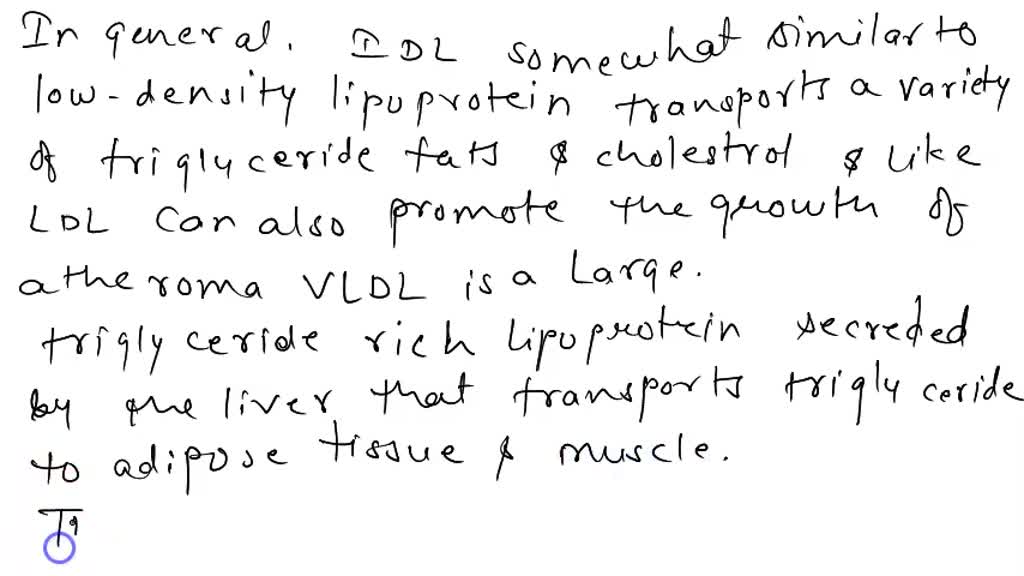 In general. IDL somewhat similar to
low-density lipuprotein transports a variety
of triglyceride fats & cholestrol & like
LDL can also promote the growth of
atheroma VLDL is a Large.
triglyceride rich lipoprotein secreded
by the liver that transports triglyceride
to adipose tissue & muscle.